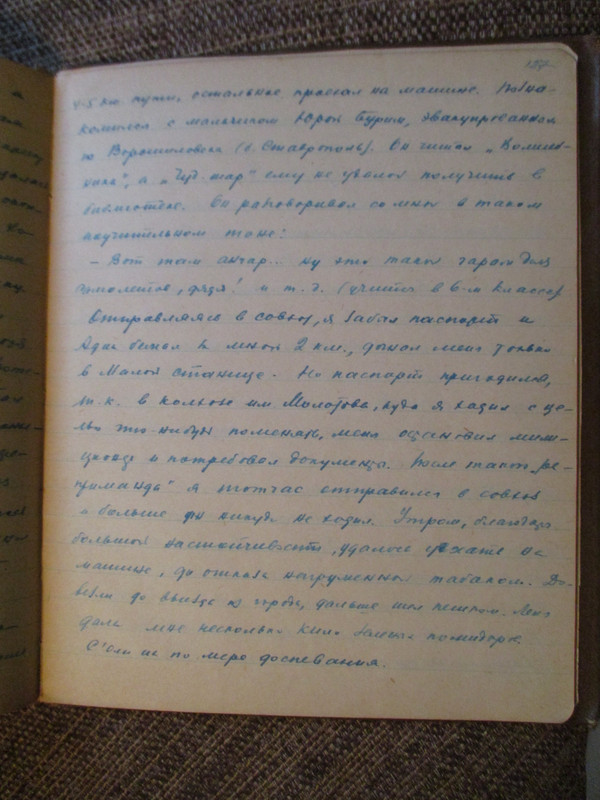 157
4-5 км. пути, остальное проехал на машине. Позна-
комился с мальчиком Юрой Бурим, эвакуированном
из Ворошиловска (б. Ставрополь). Он читал „
а „Чуд. шар" ему не удалось получить в
библиотеке. Он разговаривал со мной в таком
поучительном тоне:
– Вот там ангар... ну это такой гараж для
самолетов, дядя! и т. д. (учится в 6-м классе)
Отправляясь в совхоз, я забыл паспорт и
бежал за мной 2 км., догнал меня только
в Малой станице. Но паспорт пригодился,
т. к. в колхозе им. Молотова, куда я ходил с це-
лью что-нибудь поменять, меня остановил мили-
ционер и потребовал документа. После такой „ре-
приманды" я тотчас отправился в совхоз
и больше уж никуда не ходил. Утром, благодаря
большой настойчивости, удалось уехать на
машине, до отказа нагруженной табаком. До-
везли до въезда в город, дальше шел пешком.
дала мне несколько кило зеленых помидоров.
С'ели их по мере доспевания.